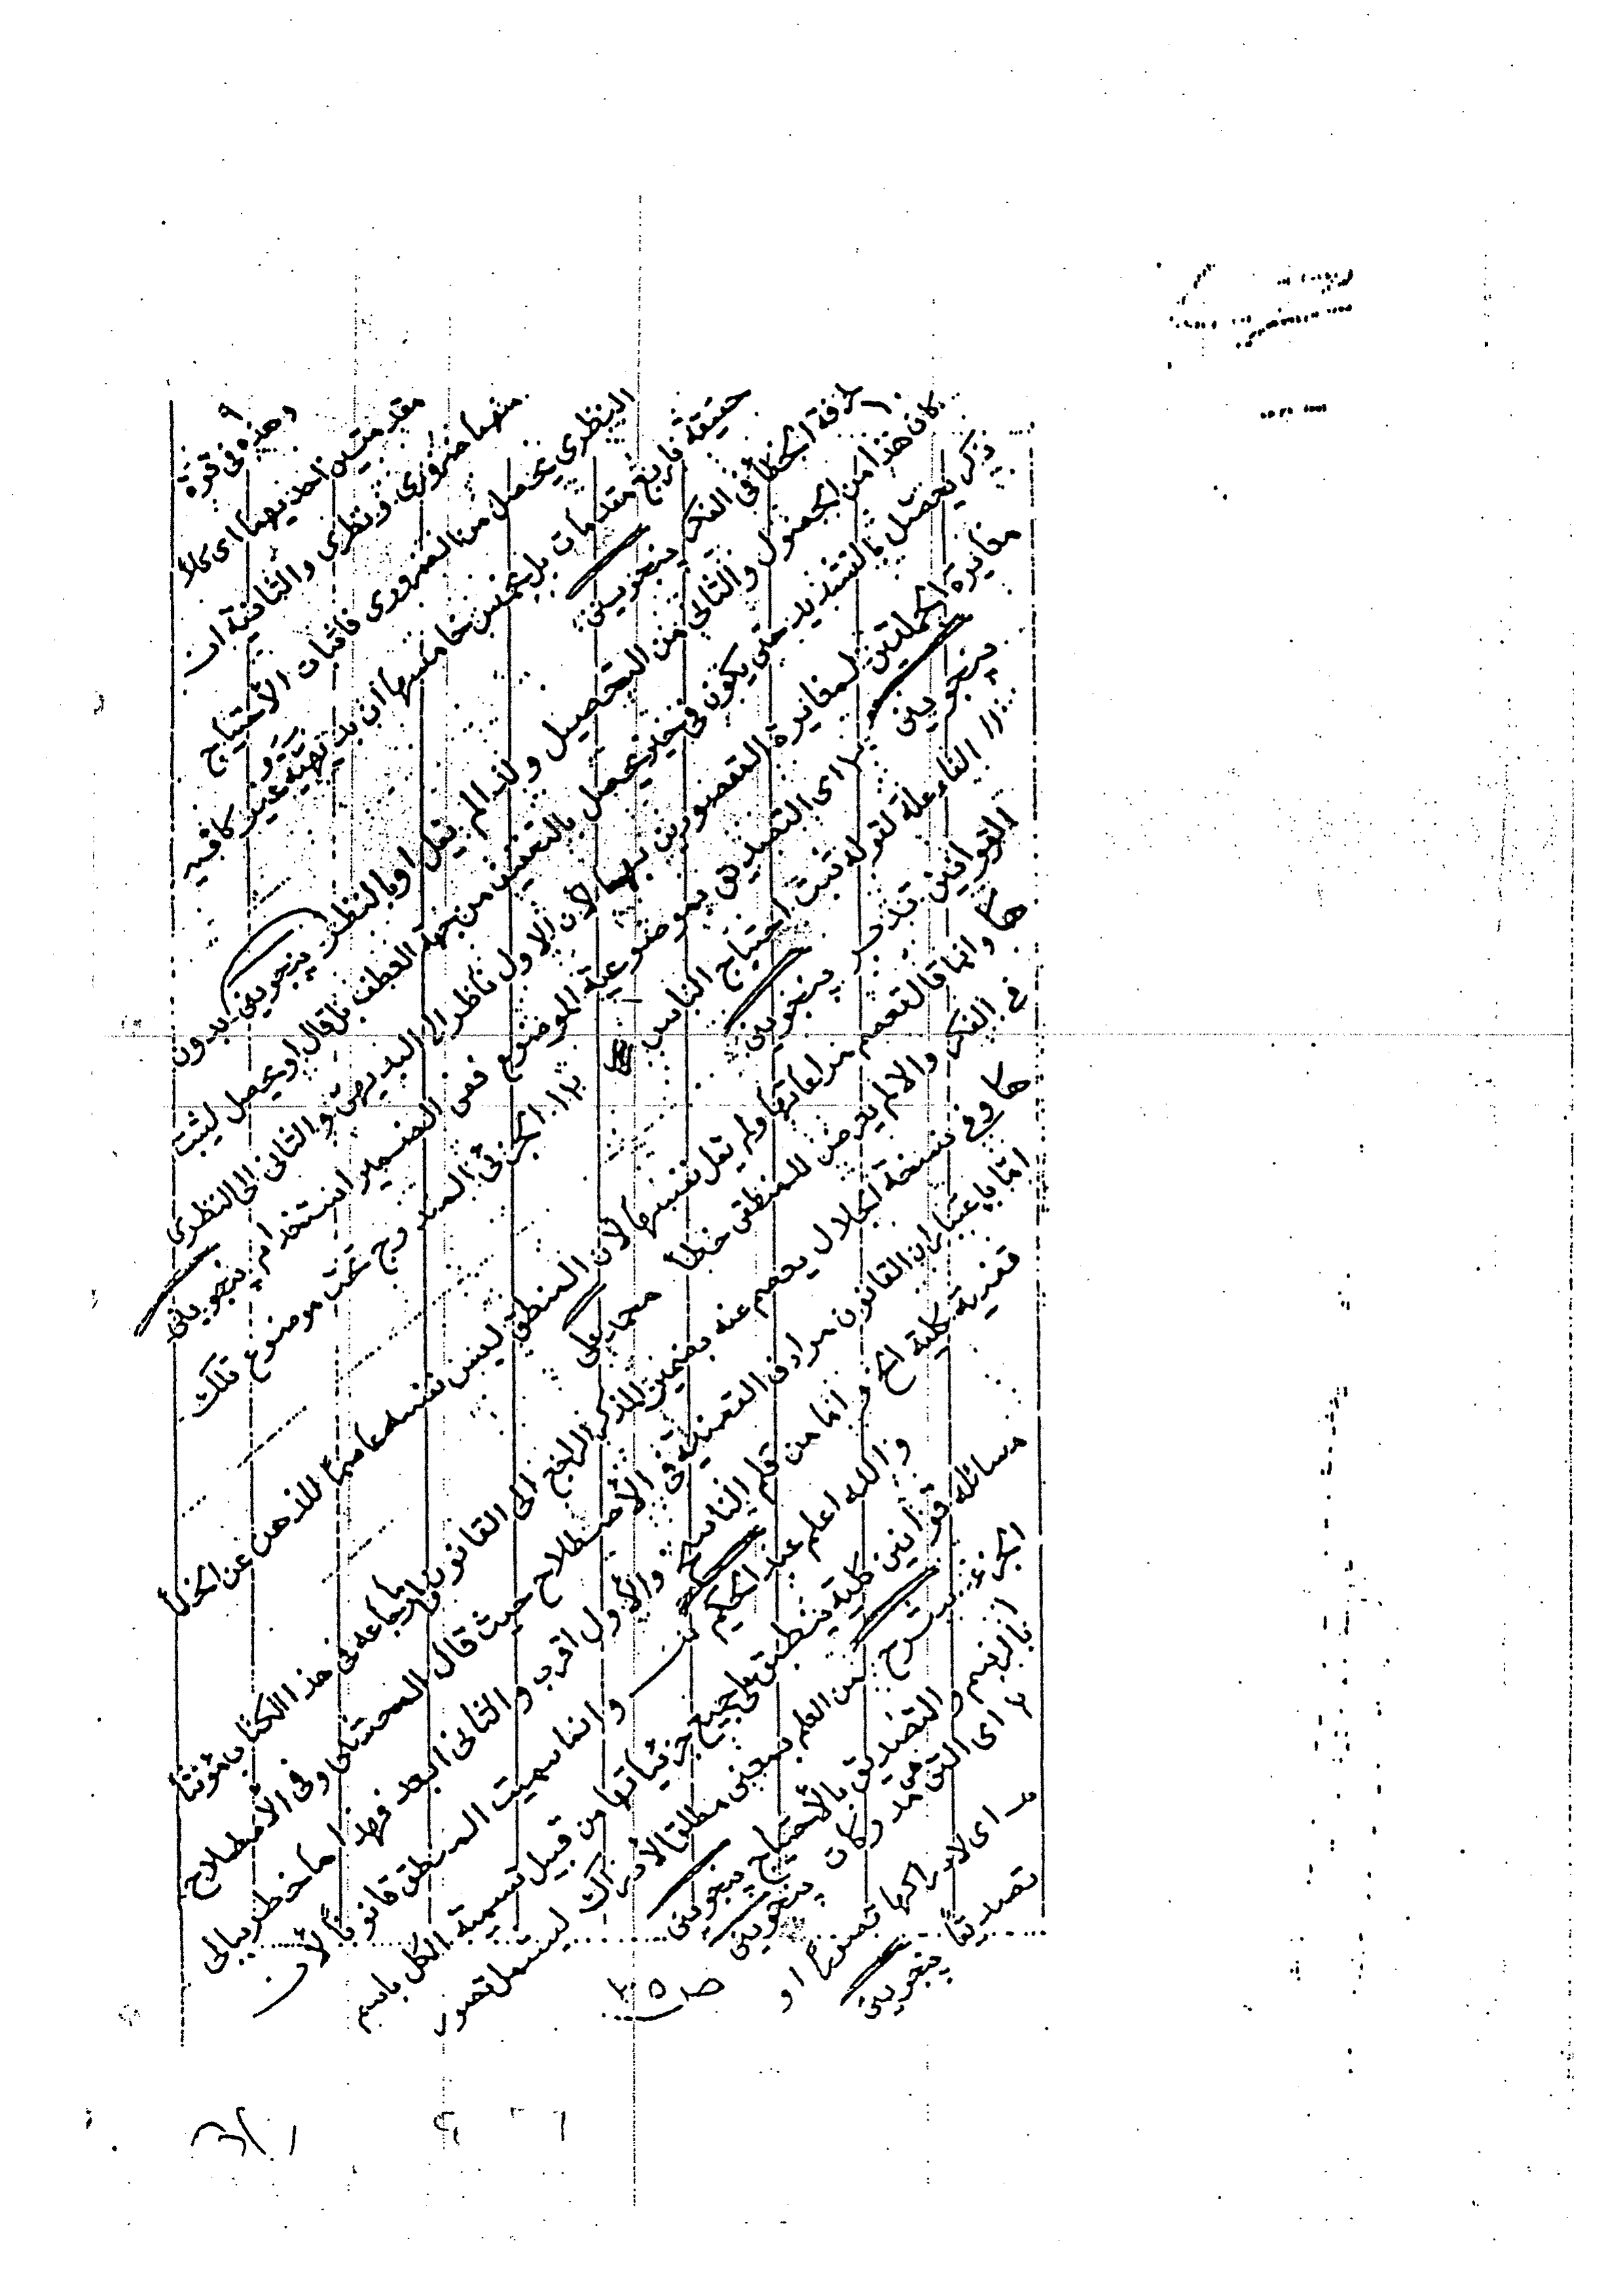 وهذه فى قوة
مقدمتين احديهما اى كلاً
منهما ضرورى ونظرى والثانية ان
النظرى يحصل من الضرورى فاثبات الاحتياج
حقيقة فاربع مقدمات بل بخمس خامستها ان بديهيته غير كافية
الخطأ فى الفكر پنجوينى
كان هذا من المجهول والثانى من التحصيل ولذا لم يقل او بالنظر پنجوينى بدون
ذكر يحصل بالتشديد حتى يكون فى حيز يحصل بالتخفيف من جهة العطف بل قال او يحصل ليثبت
مغايرة الجملتين لمغايرة التصورين بهما لان الاول ناظر الى البديهى والثانى الى النظرى
پنجوينى اى التصديق بموضوعية الموضوع ففى الضمير استخدام پنجوينى
الفاء علة لقوله ثبت احتياج الناس الجزئى المندرج تحت موضوع تلك
القوانين تدبر پنجوينى
وانما قال تعصم مراعاتها ولم يقل نفسها لان المنطق ليس نفسه عاصماً للذهن عن الخطأ
فى الفكر والا لم يعرض للمنطقى خطأ محمد على
وفى نسخة الجلال يعصم عنه بضمير المذكر الراجع الى القانون وارجاعه فى هذا الكتاب مؤنثاً
امّا باعتبار ان القانون مرادف القضية فى الاصطلاح حيث قال المحشى وفى الاصطلاح
قضية كلية الخ و اما من قلم الناسخ والاول اقرب والثانى ابعد فهذا ما خطر ببالى
والله اعلم عبد الحكيم وانما سميت المنطق قانوناً لان
مسائله قوانين كلية ينطبق على جميع جزئياتها من قبيل تسمية الكل باسم
الجزء شرح من العلم بمعنى مطلق الادراك ليشمل تصور
بالرسم و التصديق بالاحتياج پنجوينى
اى التى من مدركات پنجوينى
اى لادراكها تصوراً او
تصديقاً پنجوينى